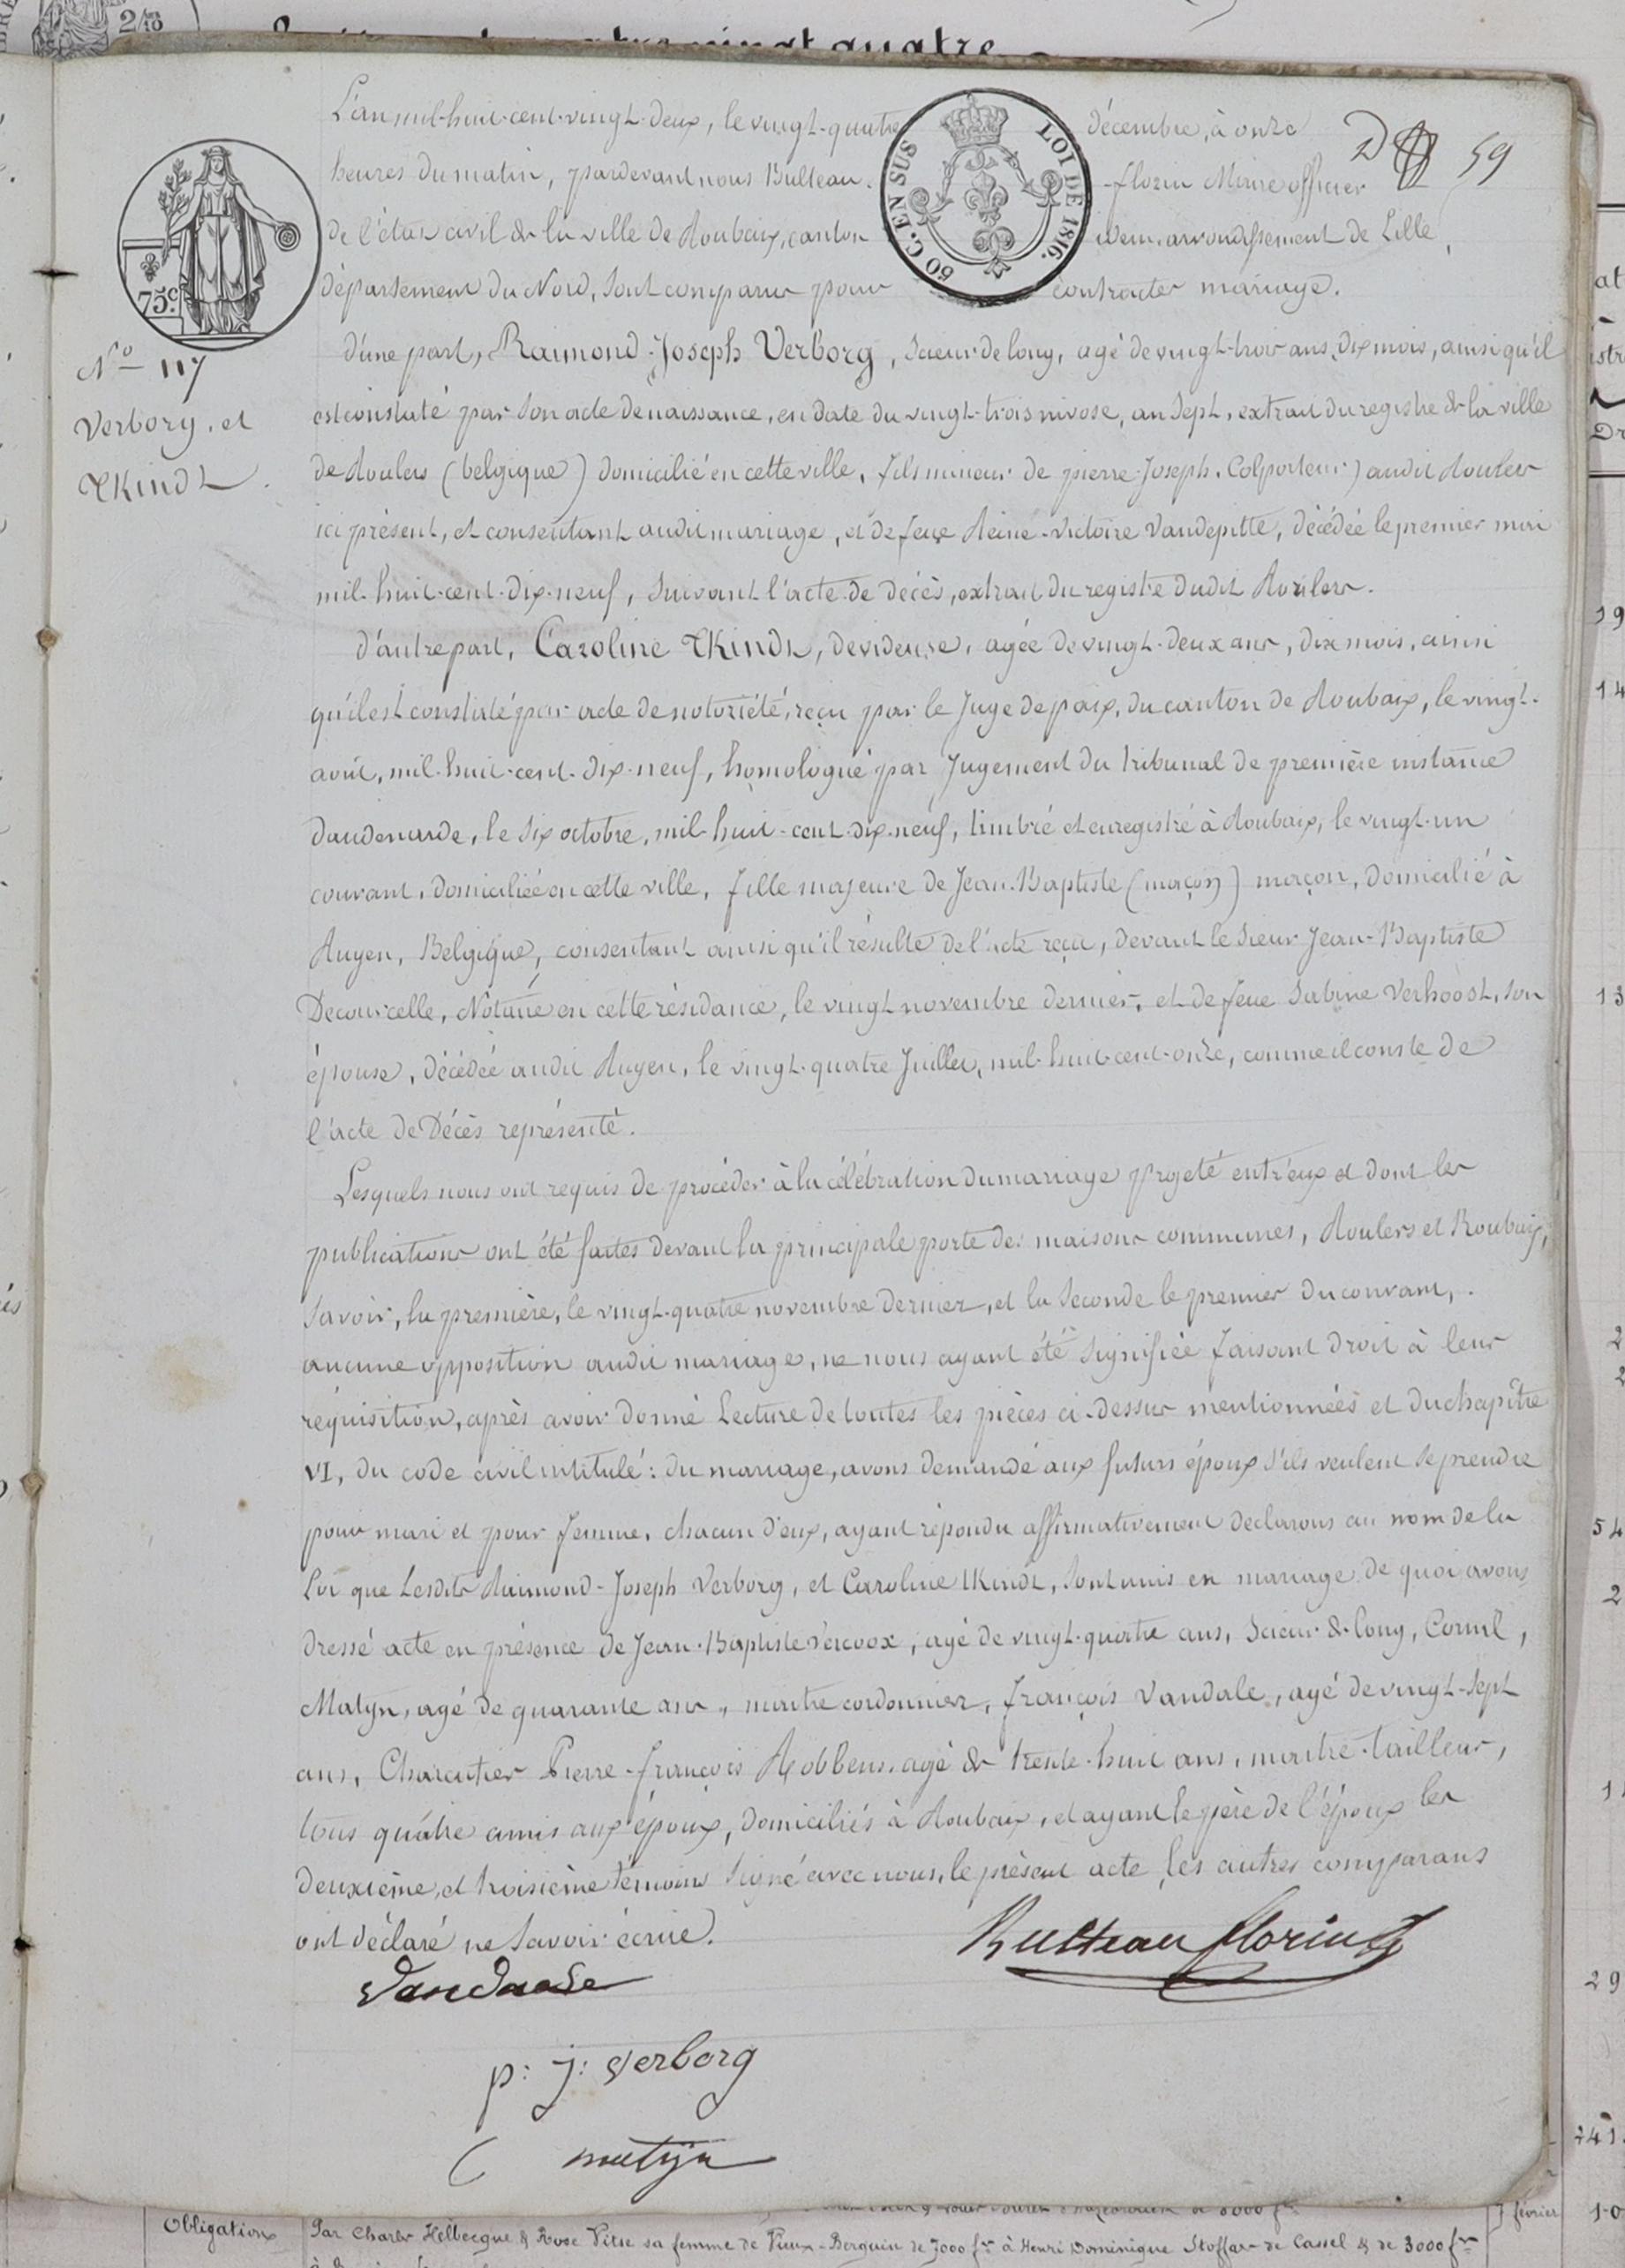 2/10
quatre vingt quatre
L'an mil-huit-cent-vingt-deux, le vingt-quatre décembre, à onze
D 59
heures du matin, pardevant nous Bulteau-florin Maire officier
de l'état civil de la ville de Roubaix, canton idem, arrondissement de Lille,
département du Nord, sont comparus pour contracter mariage.
50 C. EN SUS
LOI DE 1816.
75c.
No 117
Verborg, et
TKindt.
d'une part, Raimond-Joseph Verborg, scieur de long, agé de vingt-trois ans, dix mois, ainsi qu'il
est constaté par son acte de naissance, en date du vingt-trois nivose, an sept, extrait du registre de la ville
de Roulers (belgique) domicilié en cette ville, fils mineur de pierre-Joseph, Colporteur) audit Roulers
ici présent, et consentant audit mariage, et de feue Reine-Victoire Vandepitte, décédée le premier mai
mil-huit-cent-dix-neuf, suivant l'acte de décès, extrait du registre dudit Roulers.
d'autre part, Caroline TKindt, dévideuse, agée de vingt-deux ans, dix mois, ainsi
qu'il est constaté par acte de notoriété, reçu par le Juge de paix, du canton de Roubaix, le vingt-
août, mil-huit-cent-dix-neuf, homologué par Jugement du tribunal de première instance
daudenarde, le six octobre, mil-huit-cent-dix-neuf, timbré et enregistré à Roubaix, le vingt-un
courant, domiciliée en cette ville, fille majeure de Jean-Baptiste (maçon) maçon, domicilié à
Ruyen, Belgique, consentant ainsi qu'il résulte de l'acte reçu, devant le sieur Jean-Baptiste
Decourcelle, Notaire en cette résidance, le vingt novembre dernier, et de feue Sabine Verhoost, son
épouse, décédée audit Ruyen, le vingt-quatre Juillet, mil-huit-cent-onze, comme il conste de
l'acte de Décès représenté.
Lesquels nous ont requis de procéder à la célébration du mariage projeté entr'eux et dont les
publications ont été faites devant la principale porte des maisons communes, Roulers et Roubaix,
savoir, la première, le vingt-quatre novembre dernier, et la seconde le premier du courant,
aucune opposition audit mariage, ne nous ayant été signifiée faisant droit à leur
réquisition, après avoir donné Lecture de toutes les pièces ci-dessus mentionnées et du chapitre
VI, du code civil intitulé: du mariage, avons demandé aux futurs époux s'ils veulent se prendre
pour mari et pour femme, chacun d'eux, ayant répondu affirmativement declarons au nom de la
Loi que Lesdits Raimond-Joseph Verborg, et Caroline tKindt, sont unis en mariage de quoi avons
dressé acte en présence de Jean-Baptiste , agé de vingt-quatre ans, scieur de long, Cornil,
Matyn, agé de quarante ans, maitre cordonnier, françois Vandale, agé de vingt-sept
ans, Charcutier Pierre-françois Robbens, agé de trente-huit ans, maitre-tailleur,
tous quatre amis aux époux, domiciliés à Roubaix, et ayant le père de l'époux les
deuxième, et troisième témoins signé avec nous, le présent acte, les autres comparans
ont déclaré ne savoir écrire.
Bulteau florin
Vandaele
p: J: Verborg
C matyn
Obligation
Par Charles Helbecque & Rose Vitse sa femme de Vieux-Berquin de 7000 frs à Henri Dominique Stoffaes de Cassel & de 3000 frs
7 février